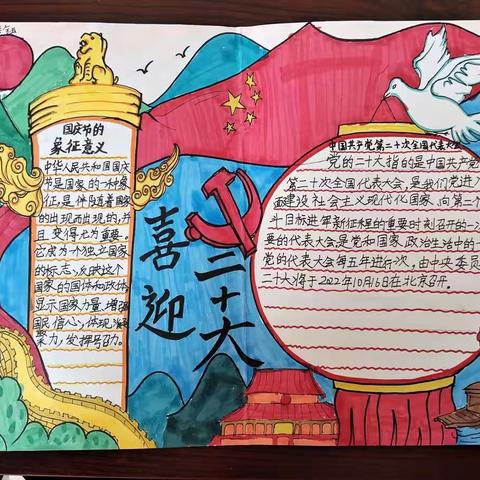 国庆节的
象征意义
中华人民共和国国庆
节是国家的一种象
征,是伴随着国家
的出现而出现的,并
且变得尤为重要。
它成为一个独立国家
的标志,反映这个
国家的国体和政体,
显示国家力量,增强
国民信心,体现凝
聚力,发挥号召力。
喜迎
二十大
中国共产党第二十次全国代表大会
党的二十大指的是中国共产党
第二十次全国代表大会,是我们党进入
面建设社会主义现代化国家、向第二个
斗目标进军新征程的重要时刻召开的一
要的代表大会,是党和国家政治生活中的
党的代表大会每五年进行一次,由中央委员
二十大将于2022年10月16日在北京召开。